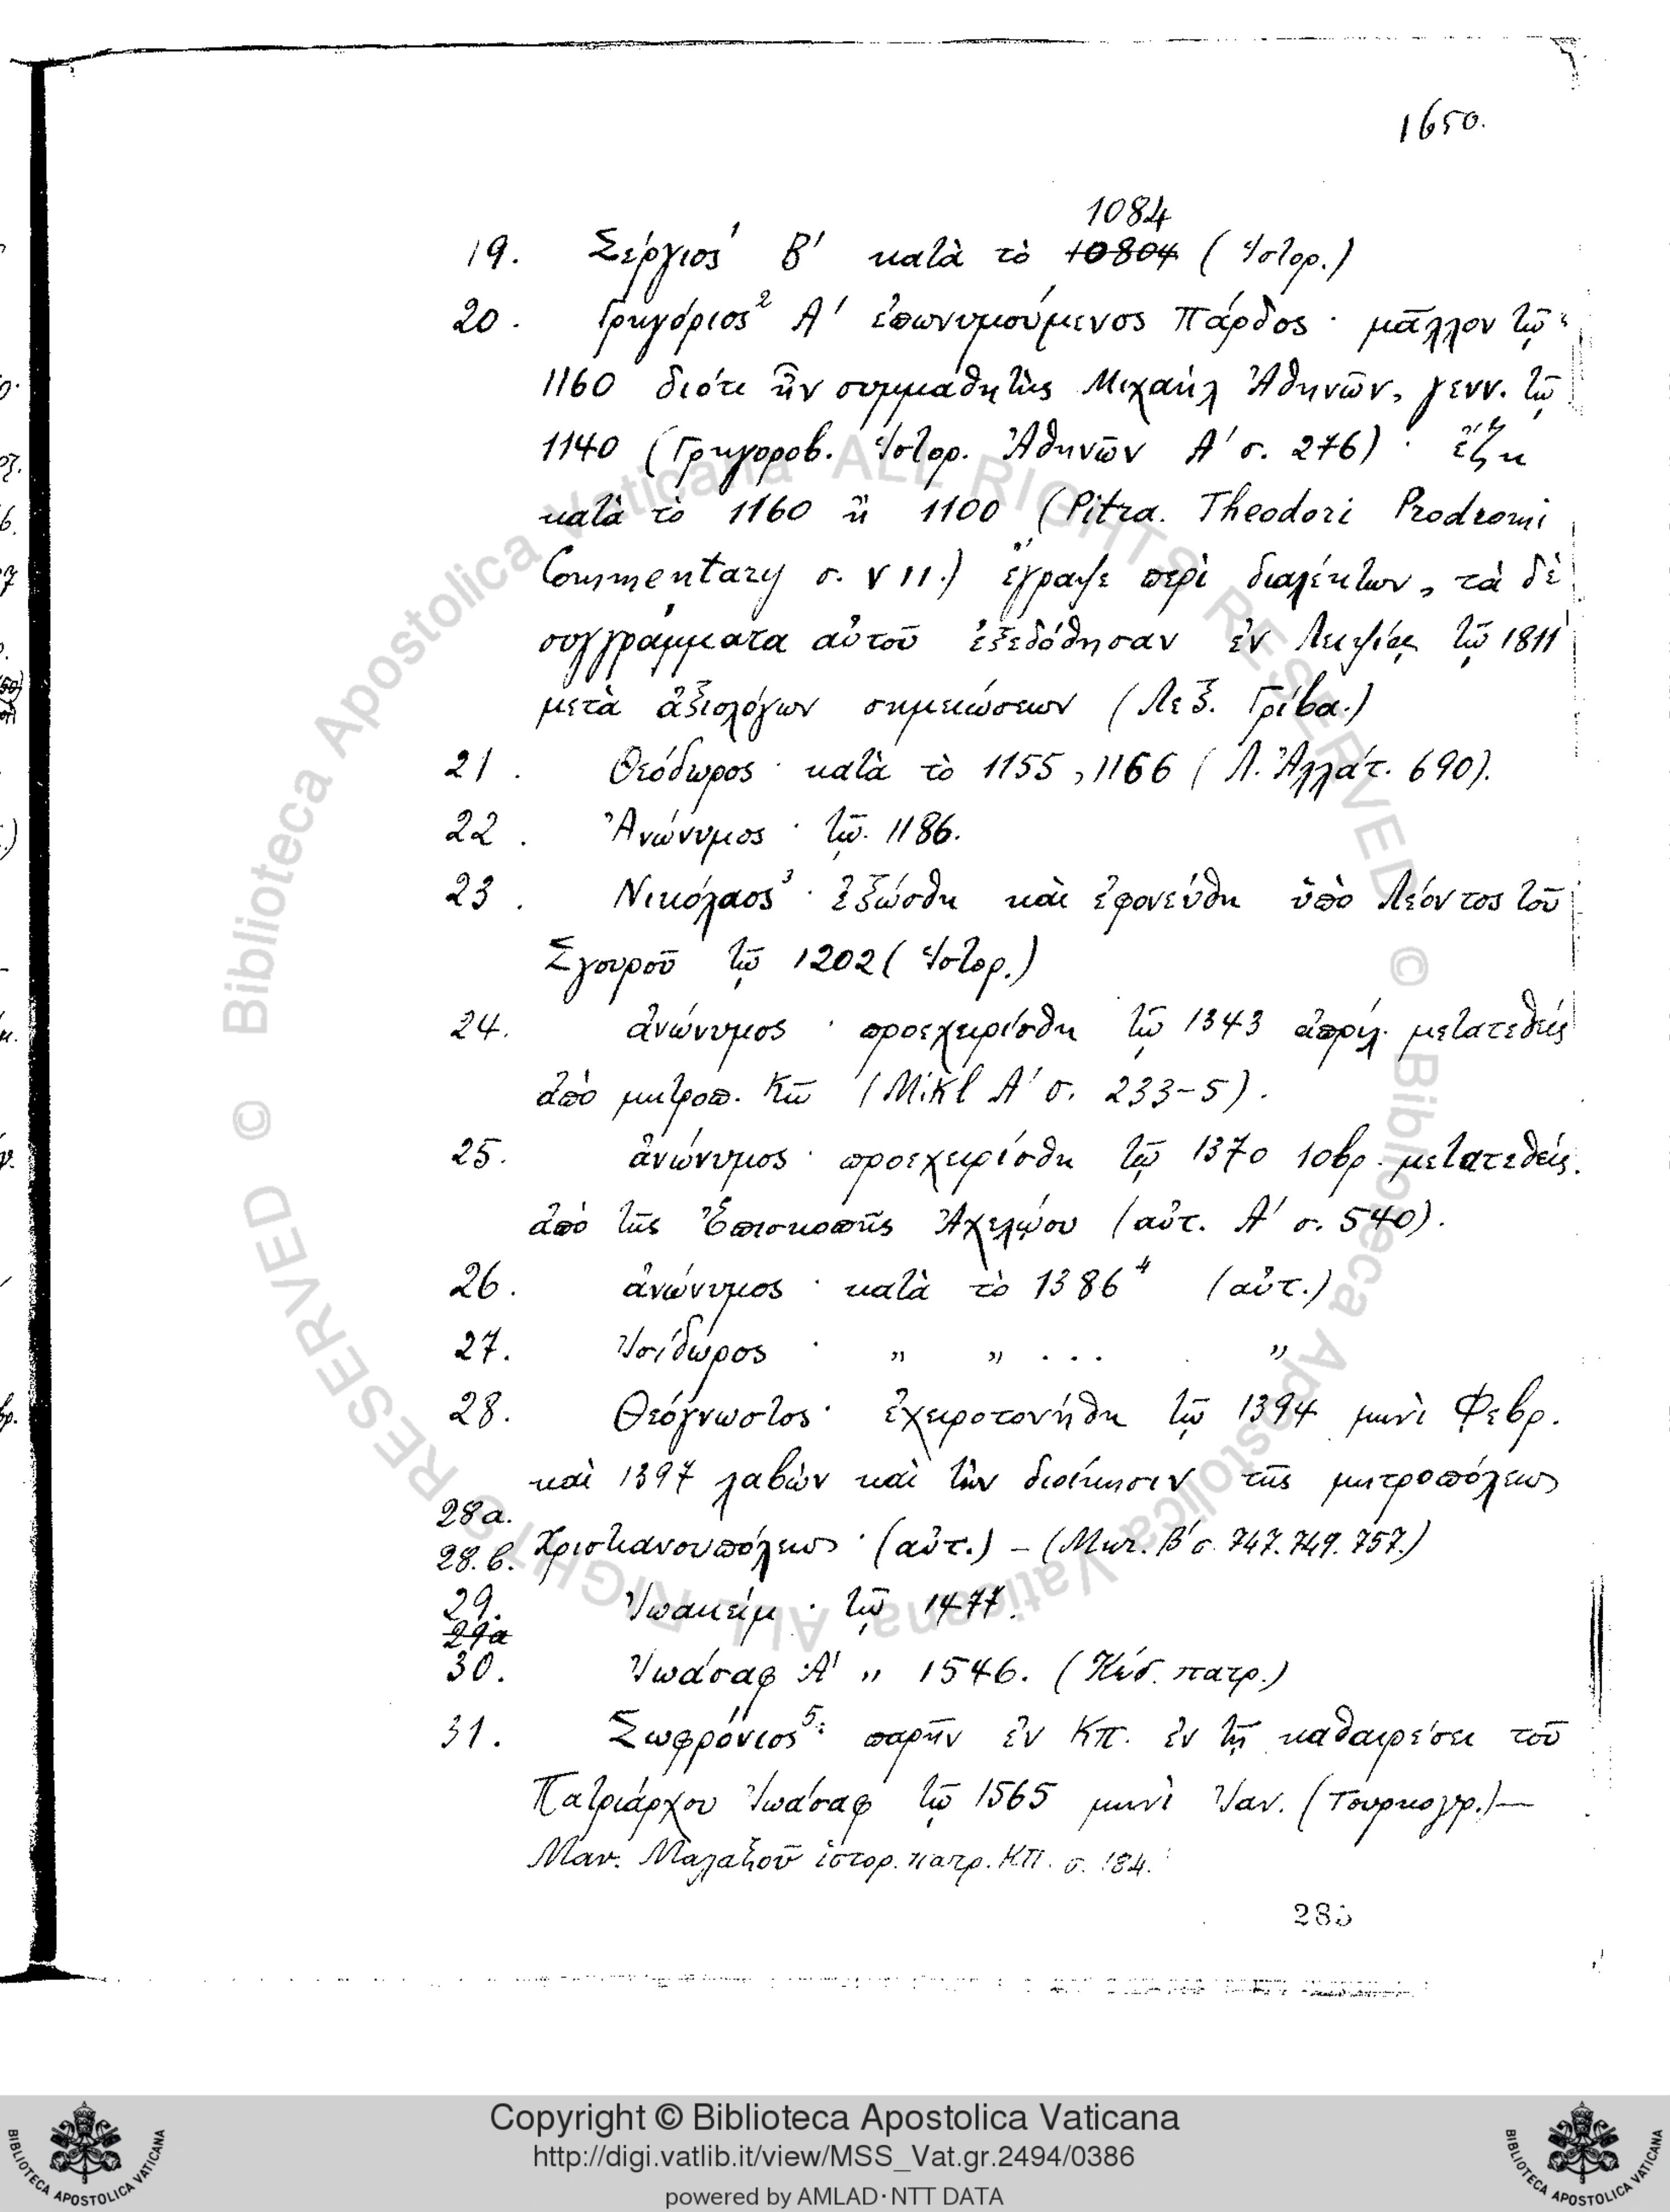 1650.
1084
19. Σέργιος¹ Β' κατὰ τὸ 10804 (Ἱστορ.)
20. Γρηγόριος² Α' ἐπωνυμούμενος Πάρδος · μᾶλλον τῷ
1160 διότι ἦν συμμαθητὴς Μιχαὴλ Ἀθηνῶν, γενν. τῷ
1140 (Γρηγοροβ. Ἱστορ. Ἀθηνῶν Α' σ. 276) · ἔζη
κατὰ τὸ 1160 ἢ 1100 (Pitra. Theodori Prodromi
Commentary σ. VII.) ἔγραψε περὶ διαλέκτων, τὰ δὲ
συγγράμματα αὐτοῦ ἐξεδόθησαν ἐν Λειψίᾳ τῷ 1811
μετὰ ἀξιολόγων σημειώσεων (Λεξ. Γρίβα.)
21. Θεόδωρος · κατὰ τὸ 1155, 1166 (Λ. Ἀλλάτ. 690).
22. Ἀνώνυμος · τῷ 1186.
23. Νικόλαος³ · ἐξώσθη καὶ ἐφονεύθη ὑπὸ Λέοντος τοῦ
Σγουροῦ τῷ 1202 (Ἱστορ.)
24. ἀνώνυμος · προεχειρίσθη τῷ 1343 ἀπρίλ. μετατεθεὶς
ἀπὸ μητροπ. Κῶ (Mikl Α' σ. 233-5).
25. ἀνώνυμος · προεχειρίσθη τῷ 1370 10βρ. μετατεθείς.
ἀπὸ τῆς Ἐπισκοπῆς Ἀχελῴου (αὐτ. Α' σ. 540).
26. ἀνώνυμος · κατὰ τὸ 1386⁴ (αὐτ.)
27. Ἰσίδωρος · „ „ ... „
28. Θεόγνωστος · ἐχειροτονήθη τῷ 1394 μηνὶ Φεβρ.
καὶ 1397 λαβὼν καὶ τὴν διοίκησιν τῆς μητροπόλεως
28a.
28.β. Χριστιανουπόλεως · (αὐτ.) – (Μικ. Β' σ. 747. 749. 757.)
29. Ἰωακεὶμ · τῷ 1477.
29a
30. Ἰωάσαφ Α' „ 1546. (Κώδ. πατρ.)
31. Σωφρόνιος⁵: παρῆν ἐν Κπ. ἐν τῇ καθαιρέσει τοῦ
Πατριάρχου Ἰωάσαφ τῷ 1565 μηνὶ Ἰαν. (Τουρκογρ.)—
Μαν. Μαλαξοῦ ἱστορ. πατρ. ΚΠ. σ. 184.
Copyright © Biblioteca Apostolica Vaticana
http://digi.vatlib.it/view/MSS_Vat.gr.2494/0386
powered by AMLAD·NTT DATA